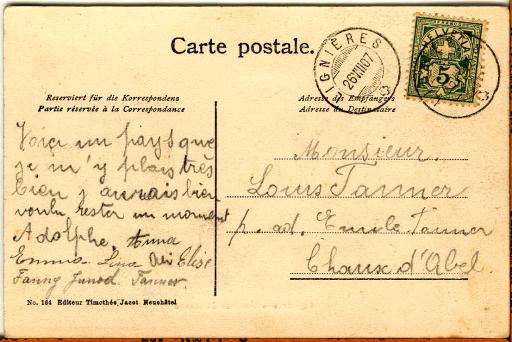 Carte postale.
LIGNIÈRES
26 VII 07
HELVETIA
5
Reserviert für die Korrespondenz
Partie réservée à la Correspondance
Adresse des Empfängers
Adresse du Destinataire
Voici un pays que
je m'y plais très
bien j'aurais bien
voulu rester un moment
Adolphe, Anna
Emma Lina Elise
Fanny Junod. Tanner.
Monsieur.
Louis Tanner
p. ad. Emile Tanner
Chaux d'Abel
No. 164 Editeur Timothée Jacot Neuchâtel